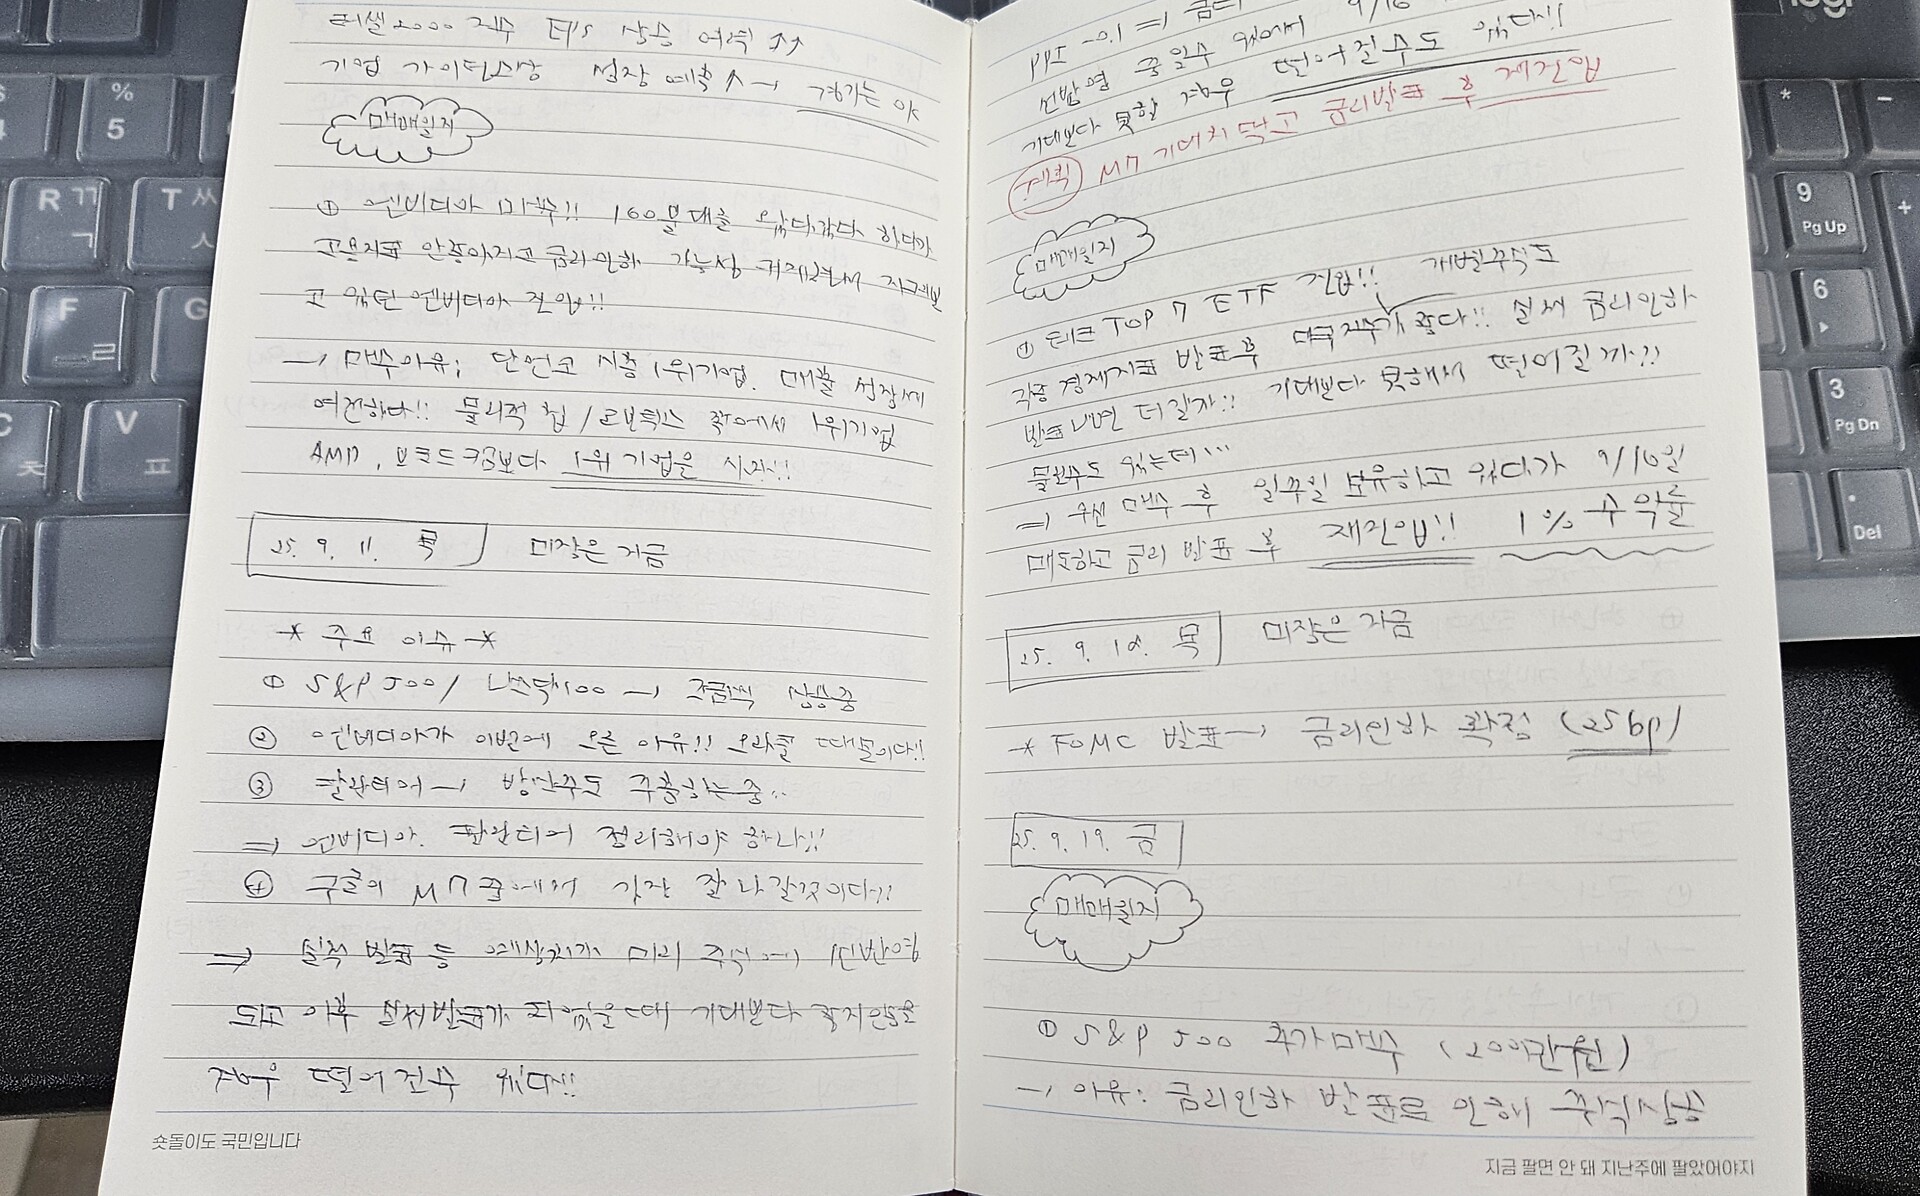 러셀2000 지수 더 상승 여력 ↑↑
기업 가이던스상 성장 예측 ↑ →
매매일지
① 엔비디아 매수!! 160불대를 왔다갔다 하다가
고용지표 안좋아지고 금리인하 가능성 커제면서 지금보
고 있던 엔비디아 진입!!
→ 매수이유; 단연코 시총 1위기업. 매출 성장세
여전하다!! 물리적 칩 / 로보틱스 쪽에서 1위기업
AMD, 브로드컴보다 1위 기업을 사자!!
25. 9. 11. 목 미장은 지금
* 주요 이슈 *
① S&P 500 / 나스닥100 → 조금씩 상승중
② 엔비디아가 이번에 오른 이유!! 오라클 때문이다!!
③ 팔란티어 → 방산주도 주춤하는 중..
⇒ 엔비디아. 팔란티어 정리해야 하나!!
④ 구글이 M7 중에서 가장 잘 나갈것이다!!
⇒ 실적 발표 등 예상치가 미리 주식 → 선반영
되고 이후 실제발표가 되었을 때 기대보다 좋지않을
경우 떨어진수 있다!!
숏돌이도 국민입니다
PPI -0.1 ⇒ 금리 9/16
선반영 중일수 있어서
기대보다 못할 경우 떨어질수도 있다!!
계획 M7 기대치 먹고 금리발표 후
매매일지
① 테크 TOP 7 ETF 진입!! 개별주식도
각종 경제지표 발표후 미국지수가 좋다!! 실제 금리인하
발표나면 더 갈까!! 기대보다 못해서 떨어질까??
물론수도 있는데...
⇒ 우선 매수 후 일주일 보유하고 있다가 9/16일
매도하고 금리 발표 후 재진입!! 1% 수익률
25. 9. 18. 목 미장은 지금
* FOMC 발표 → 금리인하 확정 (25bp)
25. 9. 19. 금
매매일지
① S&P 500 추가매수 (200만원)
→ 이유: 금리인하 발표로 인해 주식상승
지금 팔면 안 돼 지난주에 팔았어야지
logi
%
5
R ㄲ
ㄱ
T ㅆ
ㅅ
F
ㄹ
G
C
ㅊ
V
ㅍ
*
-
9
Pg Up
+
6
3
Pg Dn
.
Del